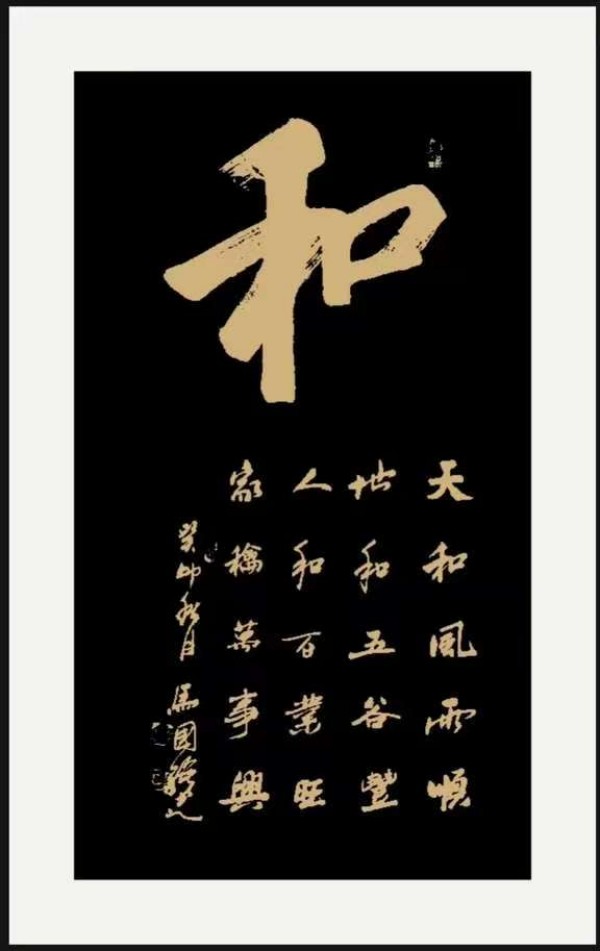 和
天和風雨順
地和五谷豐
人和百業旺
家和萬事興
癸卯秋月 馬國